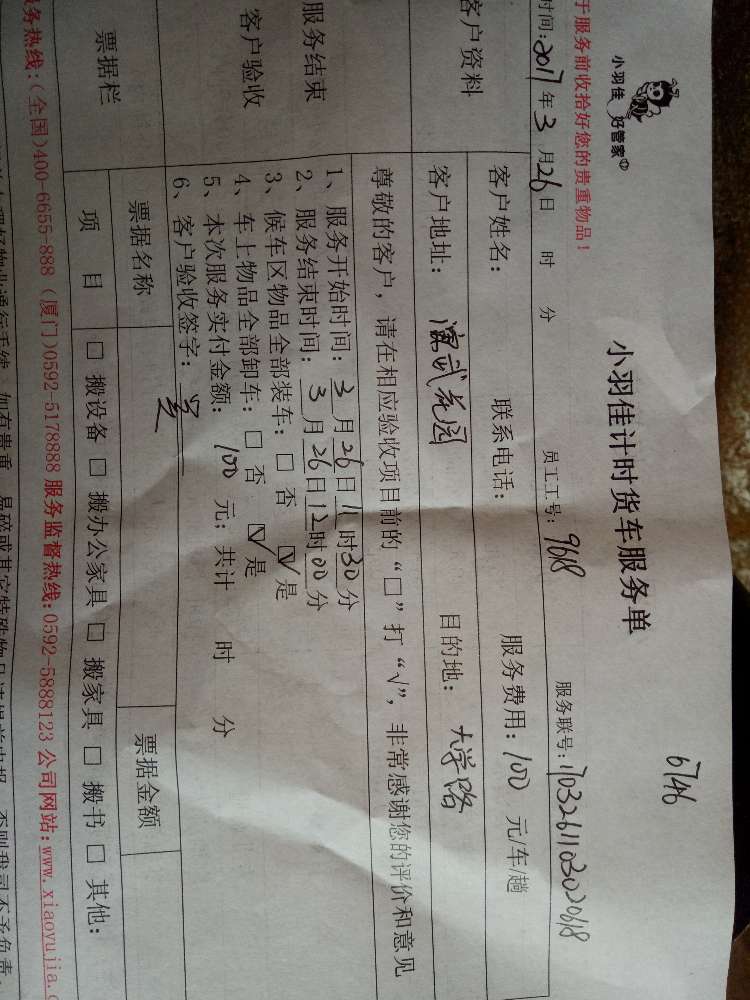 小羽佳 好管家
6746
小羽佳计时货车服务单
于服务前收拾好您的贵重物品！
时间：2017年3月26日 时 分 员工工号：9618 服务联号：1703261103020618
客户资料
客户姓名： 联系电话： 服务费用：100 元/车/趟
客户地址：演武花园 目的地：大学路
尊敬的客户，请在相应验收项目前的“□”打“√”，非常感谢您的评价和意见
服务结束
客户验收
1、服务开始时间：3月26日11时30分
2、服务结束时间：3月26日12时00分
3、候车区物品全部装车：□否 ☑是
4、车上物品全部卸车：□否 ☑是
5、本次服务实付金额：100 元；共计 时 分
6、客户验收签字：
票据栏
票据名称 票据金额
项 目 □ 搬设备 □ 搬办公家具 □ 搬家具 □ 搬书 □ 其他：
务热线：(全国)400-6655-888 (厦门)0592-5178888 服务监督热线：0592-5888123 公司网站：www.xiaoyujia.c
办理好物业通行手续，如有贵重、易碎或其它特殊物品请提前申报，否则我司不予负责。